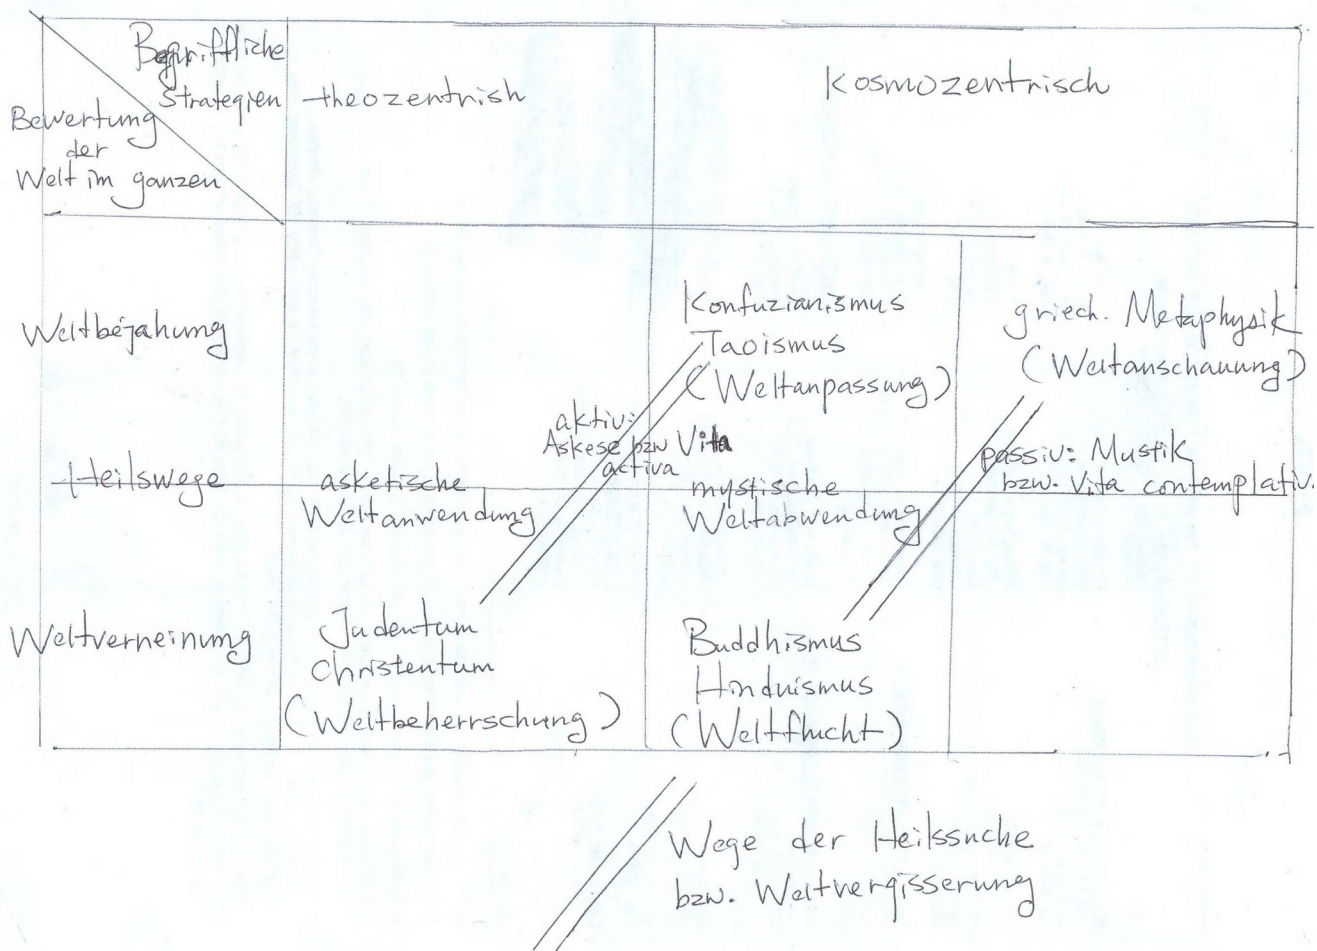 Begriffliche
Strategien
Bewertung
der
Welt im ganzen
theozentrish
Kosmozentrisch
Weltbejahung
Konfuzianismus
Taoismus
(Weltanpassung)
griech. Metaphysik
(Weltanschauung)
aktiv:
Askese bzw Vita
activa
passiv: Mustik
bzw. Vita contemplativ.
Heilswege
asketische
Weltanwendung
mystische
Weltabwendung
Weltverneinung
Judentum
christentum
(Weltbeherrschung)
Buddhismus
Hinduismus
(Weltflucht)
Wege der Heilssuche
bzw. Weltvergisserung